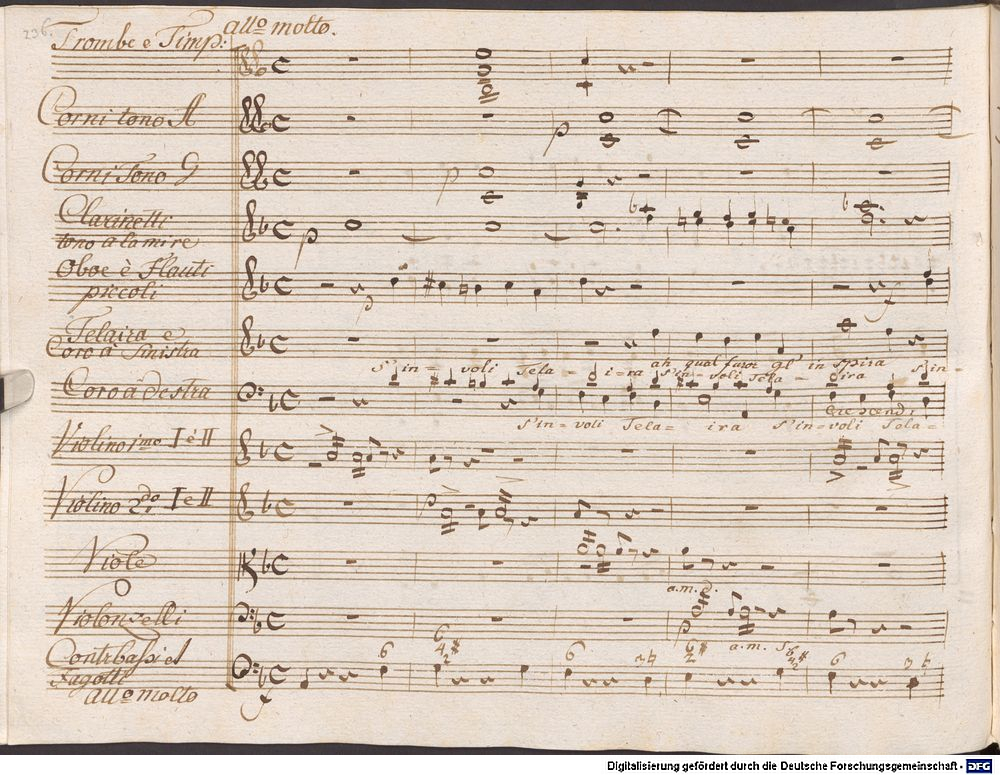 236.
allo molto.
Trombe e Timp:
Corni tono A
p
Corni Tono G
p
Clarinetti
tono alamire
p
Oboe è Flauti
piccoli
p
f
Telaira e
Coro à Sinistra
ah qual furor gl' inspira
S'in= voli Tela = i=ra S'in=voli Tela = ira S'in=
Coro à destra
Crescend:
S'in=voli Tela= ira S'in=voli Tela=
Violino 1mo I è II
Violino 2do I e II
p
Viole
a.m. d.
Violonzelli
p
a.m. s.
6 6 6
Contrbassi el
Fagotti
f
allo molto
Digitalisierung gefördert durch die Deutsche Forschungsgemeinschaft - DFG